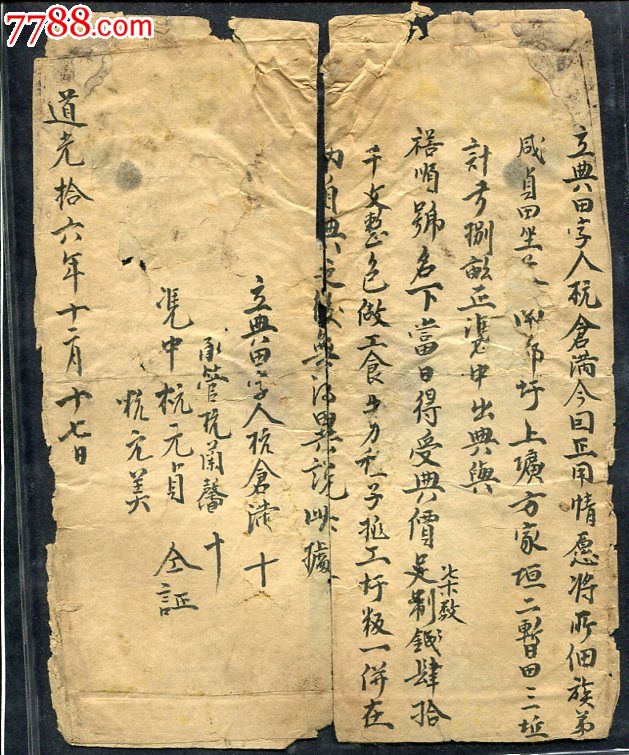 7788.com
立典田字人杭倉滿今因正用情愿将所佃族弟
咸貞田坐 圩上壙方家垣二暫田三坵
計字捌畝正憑中出典與
禚順號名下當日得受典價足制錢肆拾
柒敦
千文整色做工食牛力種子挑工圩粄一併在
内自典之後無得異説此據
立典田字人杭倉滿 十
承管杭蘭馨 十
憑中杭元貞 仝証
杭元美
道光拾六年十二月十七日